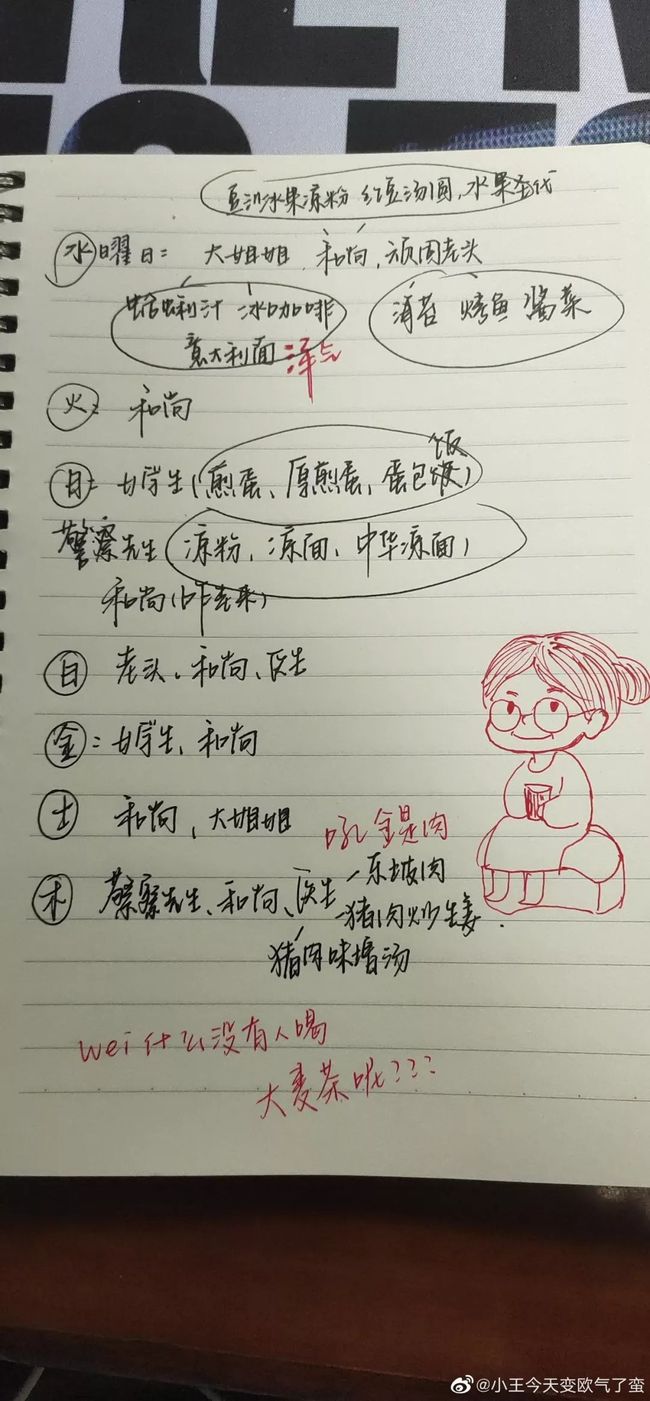 豆沙水果凉粉 红豆汤圆,水果圣代
水曜日: 大姐姐,和尚,顽固老头
蛤蜊汁 冰咖啡
意大利面 洋气
海苔 烤鱼 酱菜
火: 和尚
日: 女学生(煎蛋、厚煎蛋、蛋包饭)
警察先生(凉粉、凉面、中华凉面)
和尚(昨天来)
日 老头、和尚、医生
金: 女学生、和尚
土 和尚,大姐姐
吼 全是肉
木 警察先生、和尚、医生-东坡肉
-猪肉炒生姜.
猪肉味增汤
wei什么没有人喝
大麦茶呢???
@小王今天变欧气了蛮